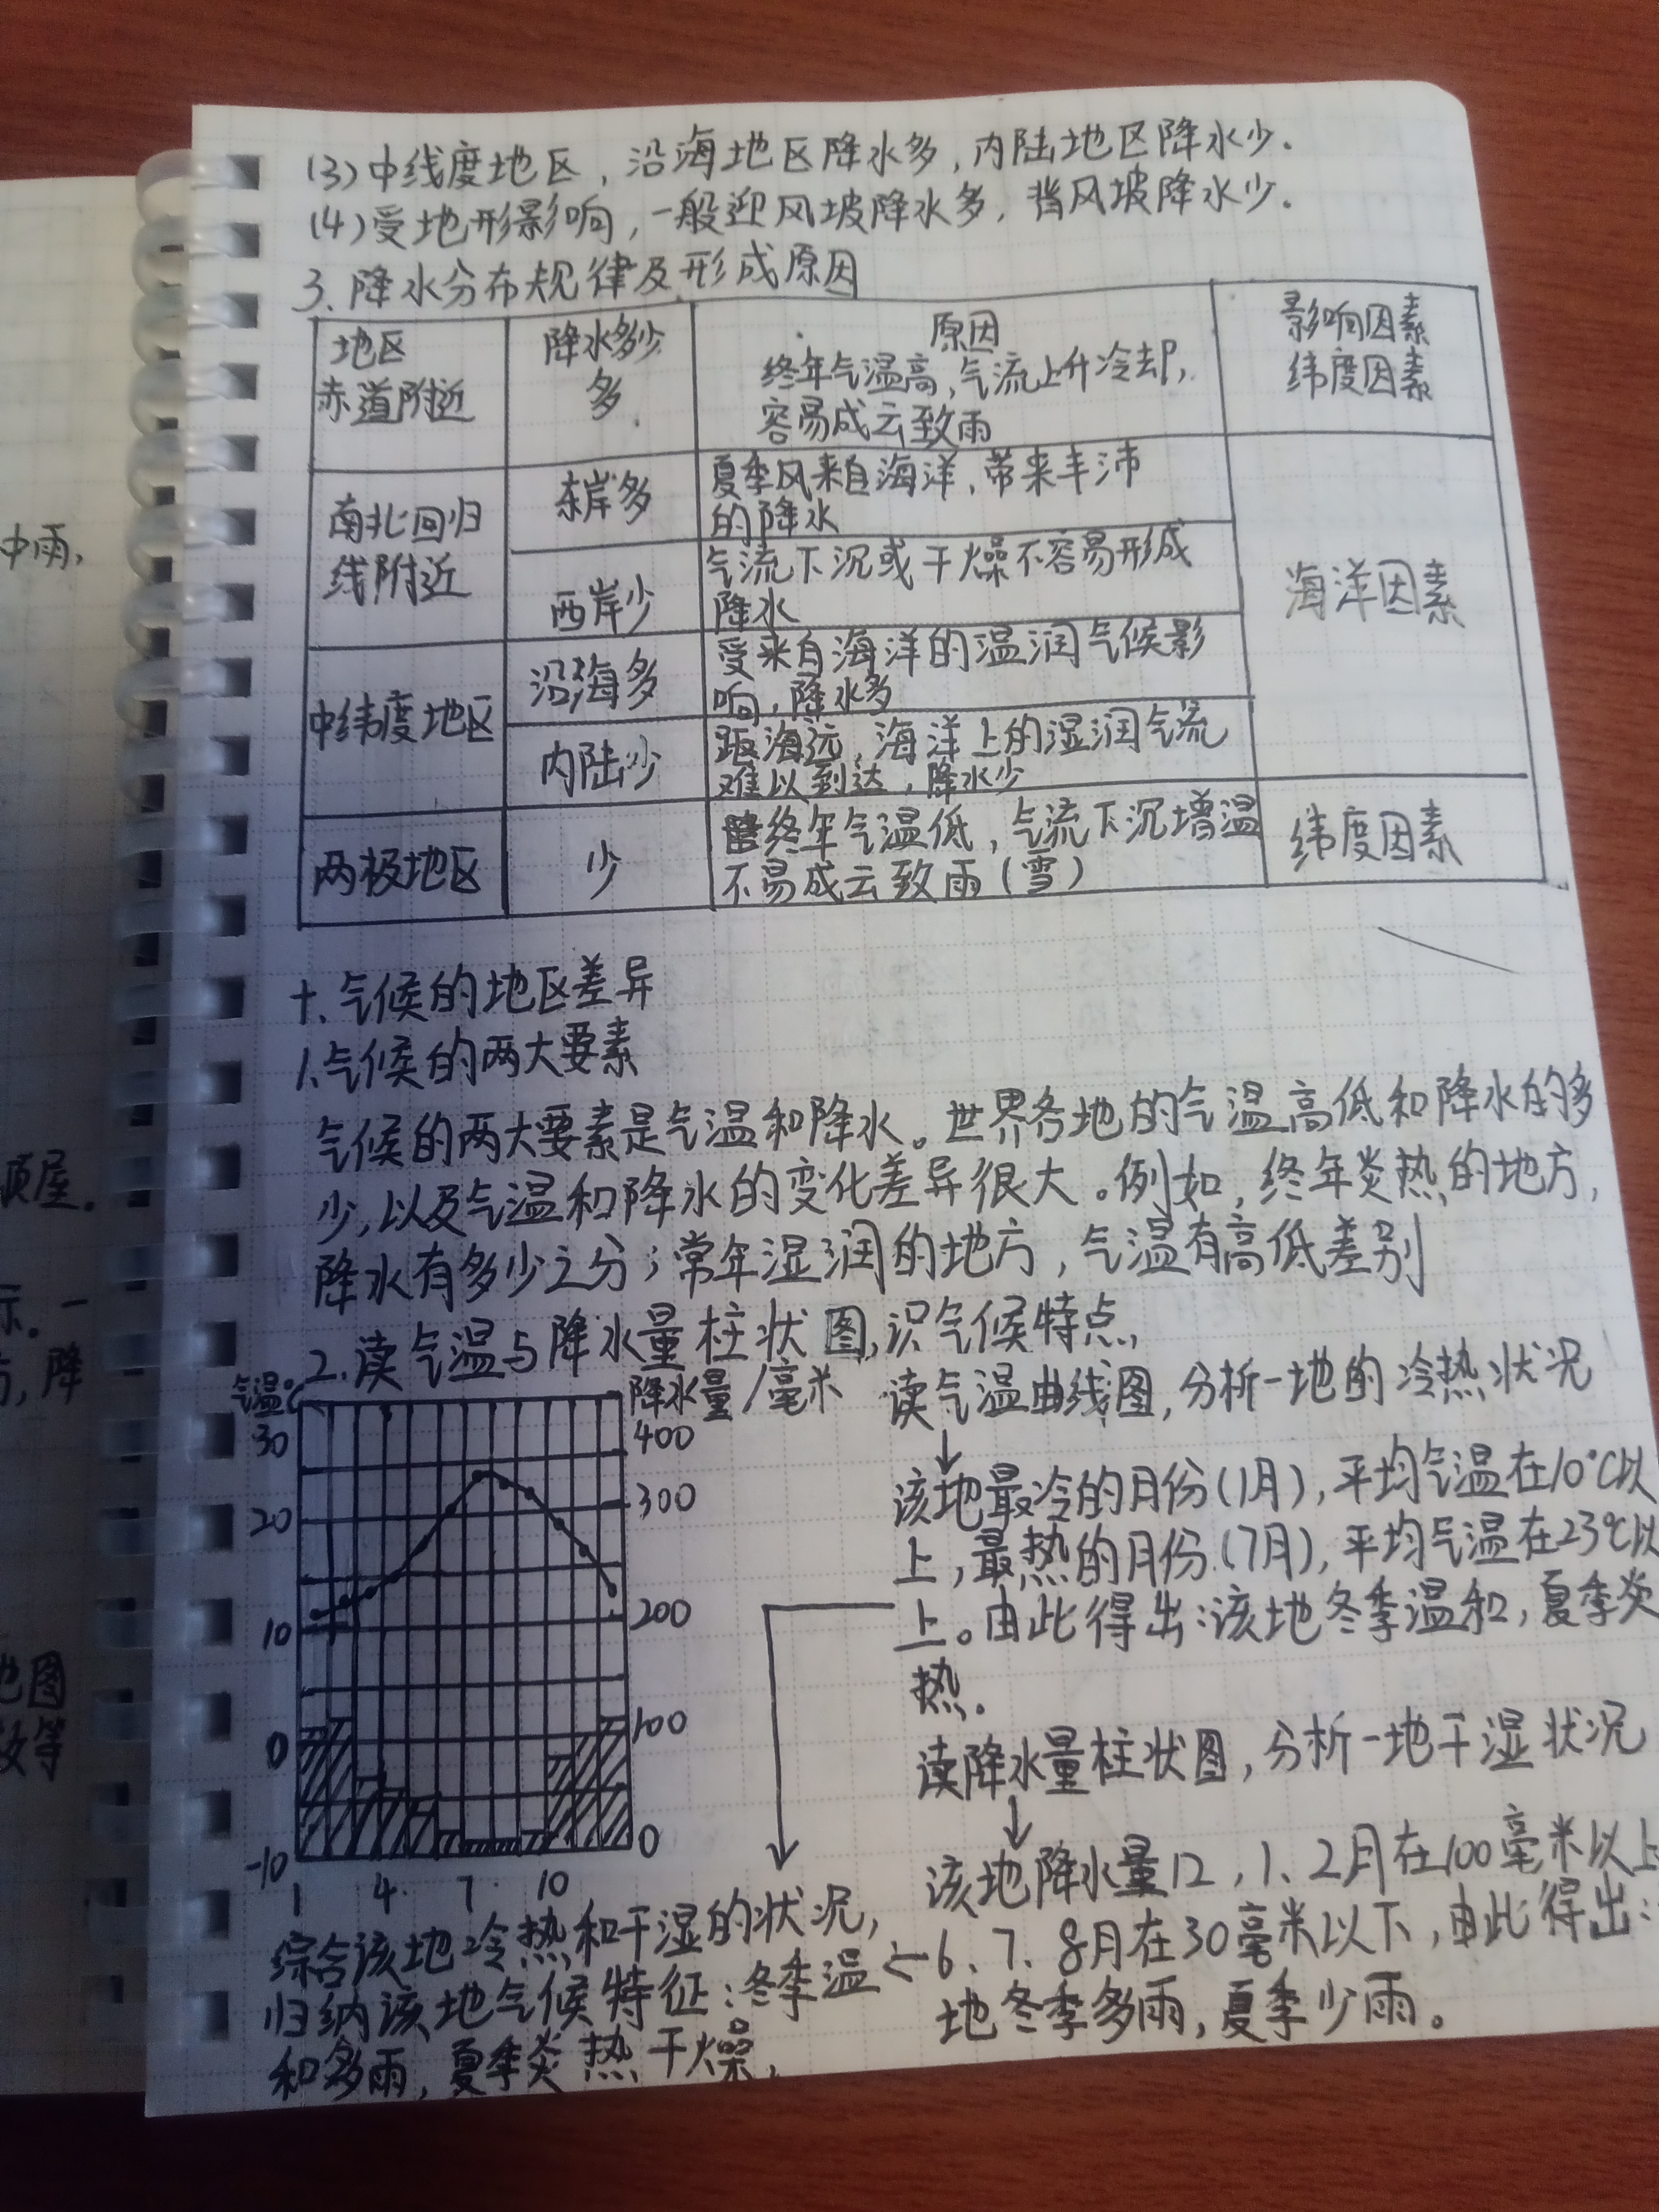 (3)中线度地区，沿海地区降水多，内陆地区降水少.
(4)受地形影响，一般迎风坡降水多，背风坡降水少.
3.降水分布规律及形成原因
地区
赤道附近
降水多少
多
原因
终年气温高，气流上升冷却，
容易成云致雨
影响因素
纬度因素
南北回归
线附近
东岸多
夏季风来自海洋，带来丰沛
的降水
西岸少
气流下沉或干燥不容易形成
降水
海洋因素
中纬度地区
沿海多
受来自海洋的温润气候影
响，降水多
内陆少
距海远，海洋上的湿润气流
难以到达，降水少
两极地区
少
终年气温低，气流下沉增温
不易成云致雨(雪)
纬度因素
十.气候的地区差异
1.气候的两大要素
气候的两大要素是气温和降水。世界各地的气温高低和降水的多
少，以及气温和降水的变化差异很大。例如，终年炎热的地方，
降水有多少之分；常年湿润的地方，气温有高低差别
2.读气温与降水量柱状图，识气候特点，
气温℃
降水量/毫米
30
20
10
0
-10
400
300
200
100
0
1 4 7 10
读气温曲线图，分析一地的冷热状况
↓
该地最冷的月份(1月)，平均气温在10℃以
上，最热的月份(7月)，平均气温在23℃以
上。由此得出：该地冬季温和，夏季炎
热。
读降水量柱状图，分析一地干湿状况
↓
该地降水量12，1、2月在100毫米以上
6、7、8月在30毫米以下，由此得出：
地冬季多雨，夏季少雨。
综合该地冷热和干湿的状况，
归纳该地气候特征：冬季温
和多雨，夏季炎热干燥，
中雨，
顶屋.
示。一
，降
地图
等